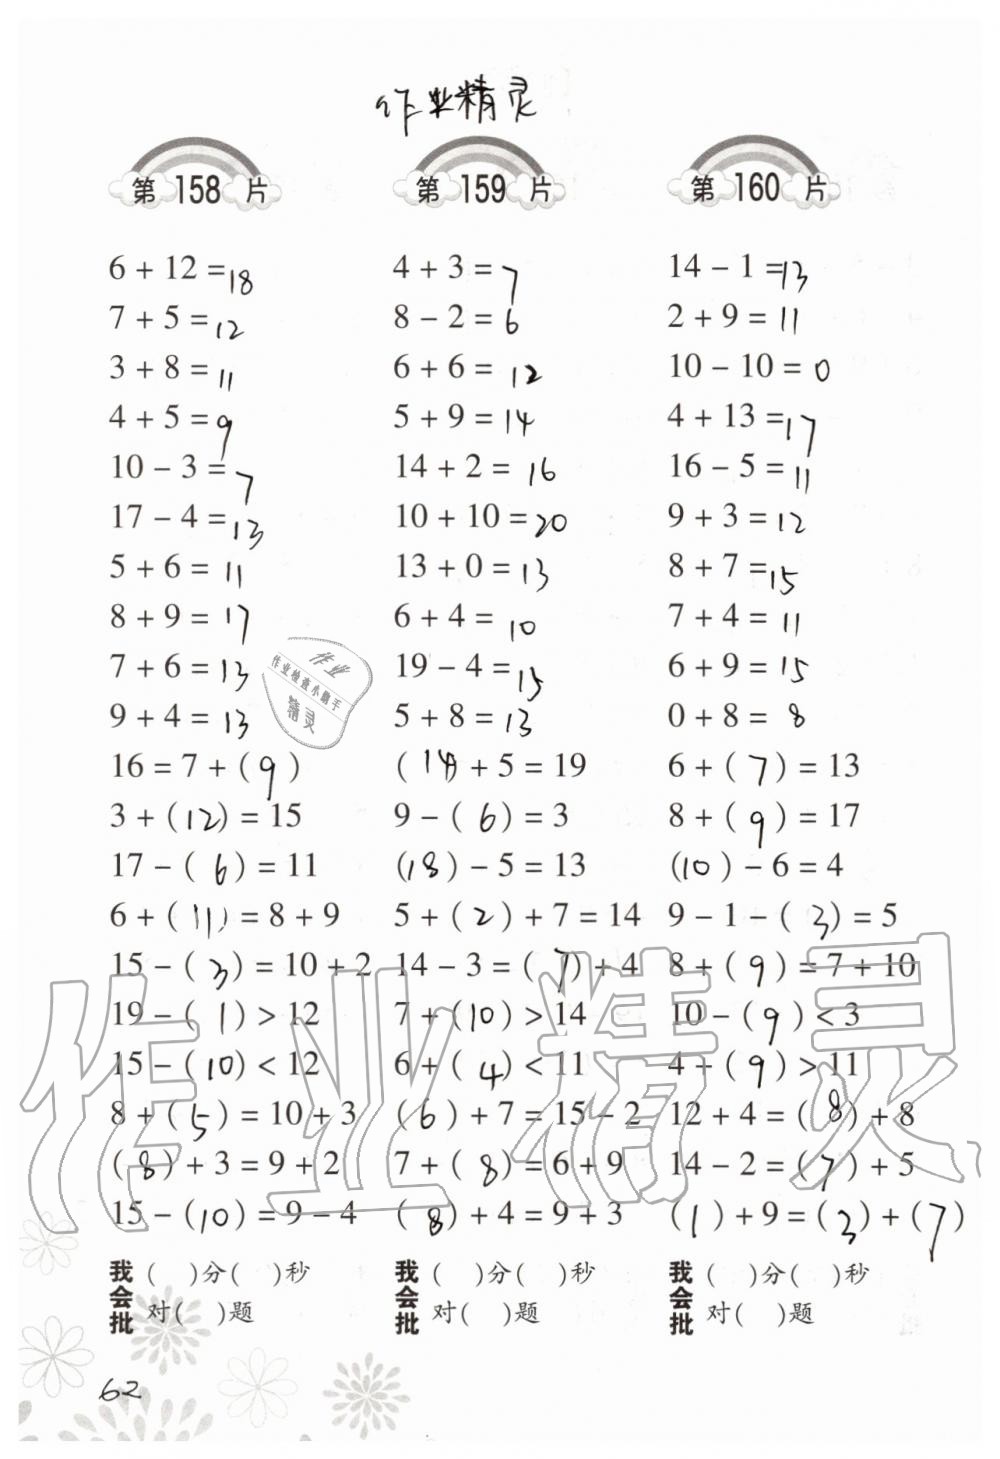 作业精灵
第158片
第159片
第160片
6 + 12 = 18
7 + 5 = 12
3 + 8 = 11
4 + 5 = 9
10 - 3 = 7
17 - 4 = 13
5 + 6 = 11
8 + 9 = 17
7 + 6 = 13
9 + 4 = 13
16 = 7 + ( 9 )
3 + (12) = 15
17 - ( 6 ) = 11
6 + ( 11 ) = 8 + 9
15 - ( 3 ) = 10 + 2
19 - ( 1 ) > 12
15 - (10) < 12
8 + ( 5 ) = 10 + 3
( 8 ) + 3 = 9 + 2
15 - (10) = 9 - 4
我会批
( )分( )秒
对( )题
4 + 3 = 7
8 - 2 = 6
6 + 6 = 12
5 + 9 = 14
14 + 2 = 16
10 + 10 = 20
13 + 0 = 13
6 + 4 = 10
19 - 4 = 15
5 + 8 = 13
( 14 ) + 5 = 19
9 - ( 6 ) = 3
(18) - 5 = 13
5 + ( 2 ) + 7 = 14
14 - 3 = ( 7 ) + 4
7 + (10) > 14
6 + ( 4 ) < 11
( 6 ) + 7 = 15 - 2
7 + ( 8 ) = 6 + 9
( 8 ) + 4 = 9 + 3
我会批
( )分( )秒
对( )题
14 - 1 = 13
2 + 9 = 11
10 - 10 = 0
4 + 13 = 17
16 - 5 = 11
9 + 3 = 12
8 + 7 = 15
7 + 4 = 11
6 + 9 = 15
0 + 8 = 8
6 + ( 7 ) = 13
8 + ( 9 ) = 17
(10) - 6 = 4
9 - 1 - ( 3 ) = 5
8 + ( 9 ) = 7 + 10
10 - ( 9 ) < 3
4 + ( 9 ) > 11
12 + 4 = ( 8 ) + 8
14 - 2 = ( 7 ) + 5
( 1 ) + 9 = ( 3 ) + ( 7 )
我会批
( )分( )秒
对( )题
作业
作业检查小助手
精灵
作业精灵
62